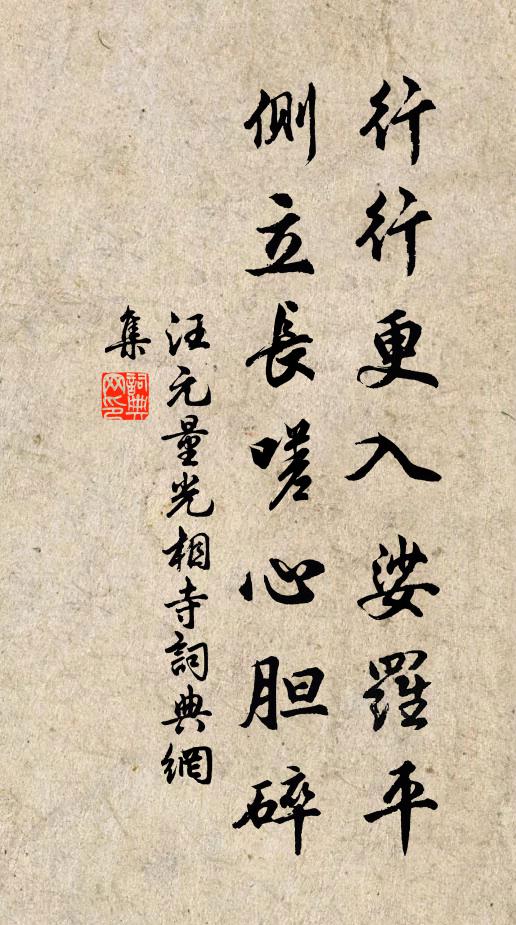 行行更入娑羅平
側立長嗟心胆碎
汪元量光相寺詞典網
集
詞典
网印